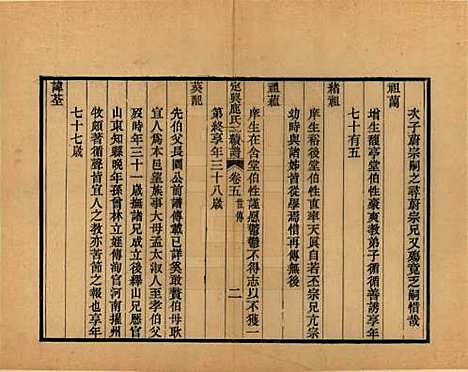 次子蔚宗嗣之尋蔚宗兄又殤竟乏嗣惜哉
祖蘭
增生馥亭堂伯性豪爽教弟子循循善誘享年
七十有五
緒祖
庠生裕後堂伯性直率天眞自若丕宗兄亢宗
幼時與諸姪皆從學焉惜再傳無後
祖蘊
庠生在含堂伯性謹愿鬱鬱不得志以不獲一
第終享年三十八歲
定興鹿氏二續譜 卷五 世傳 二
葵記
先伯父長園公前譜傳載已詳奚敢贅伯母耿
宜人爲本邑望族事大母孟太淑人至孝伯父
歿時年三十一歲撫諸兄成立後繹山兄歷官
山東知縣晚年孫曾林立姪傳洵官河南擢州
牧頗著循聲皆宜人之教亦苦節之報也享年
七十七歲
諱荃